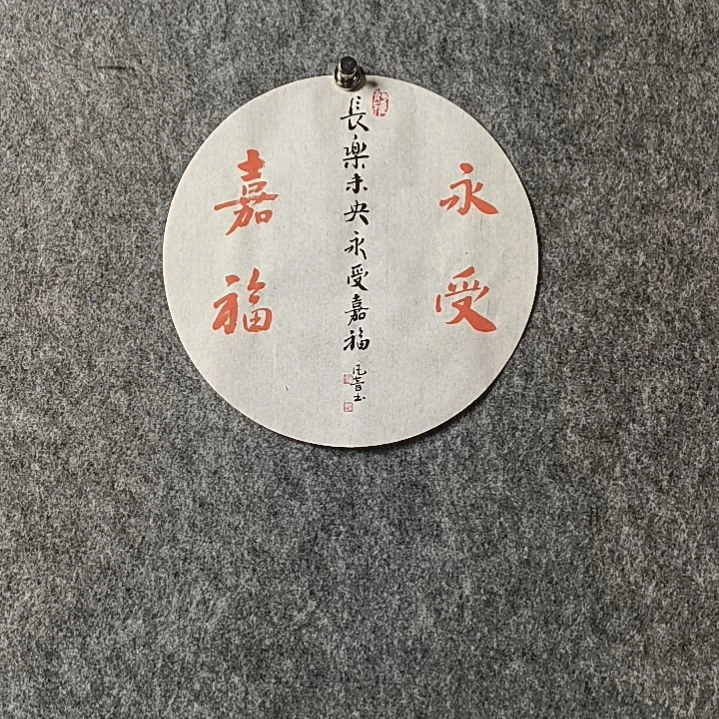 永受
長樂未央永受嘉福
嘉福